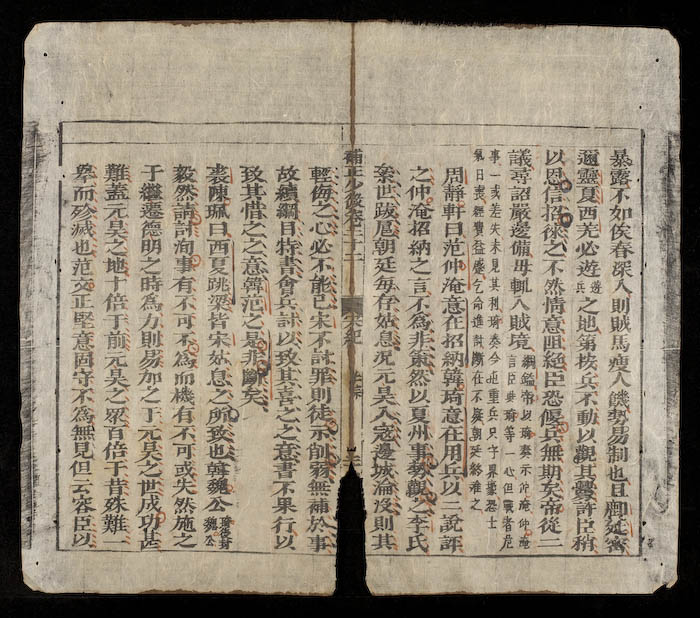 暴露不如俟春深入則賊馬瘦人饑勢易制也且鄜延密
邇靈夏西羌必遊兵之地第按兵不動以觀其釁許臣稍
以恩信招徠之不然情意阻絕臣恐偃兵無期矣帝從二
議尋詔嚴邊備毋輒入賊境
言臣與琦等一心但戰者危
事一或差失未見其利
周靜軒曰范仲淹意在招納韓琦意在用兵以二說評
之仲淹招納之言不為非策然以夏州事勢觀之李氏
桀世跋扈朝廷每存姑息況元昊入寇邊城淪沒則其
補正少微卷二十二 宋紀
輕侮之心必不能已宋不討罪則徒示削弱無補於事
故續綱目特書會兵討以致其喜之之意書不果行以
致其惜之之意韓范之是非斷矣
裘陳珮曰西夏跳梁皆宋姑息之所致也韓魏公琦後封魏公
毅然請討洵事有不可不為而機有不可或失然施之
于繼遷德明之時為力則易加之于元昊之世成功甚
難蓋元昊之地十倍于前元昊之眾百倍于昔殊難一
舉而殄滅也范文正堅意固守不為無見但云容臣以